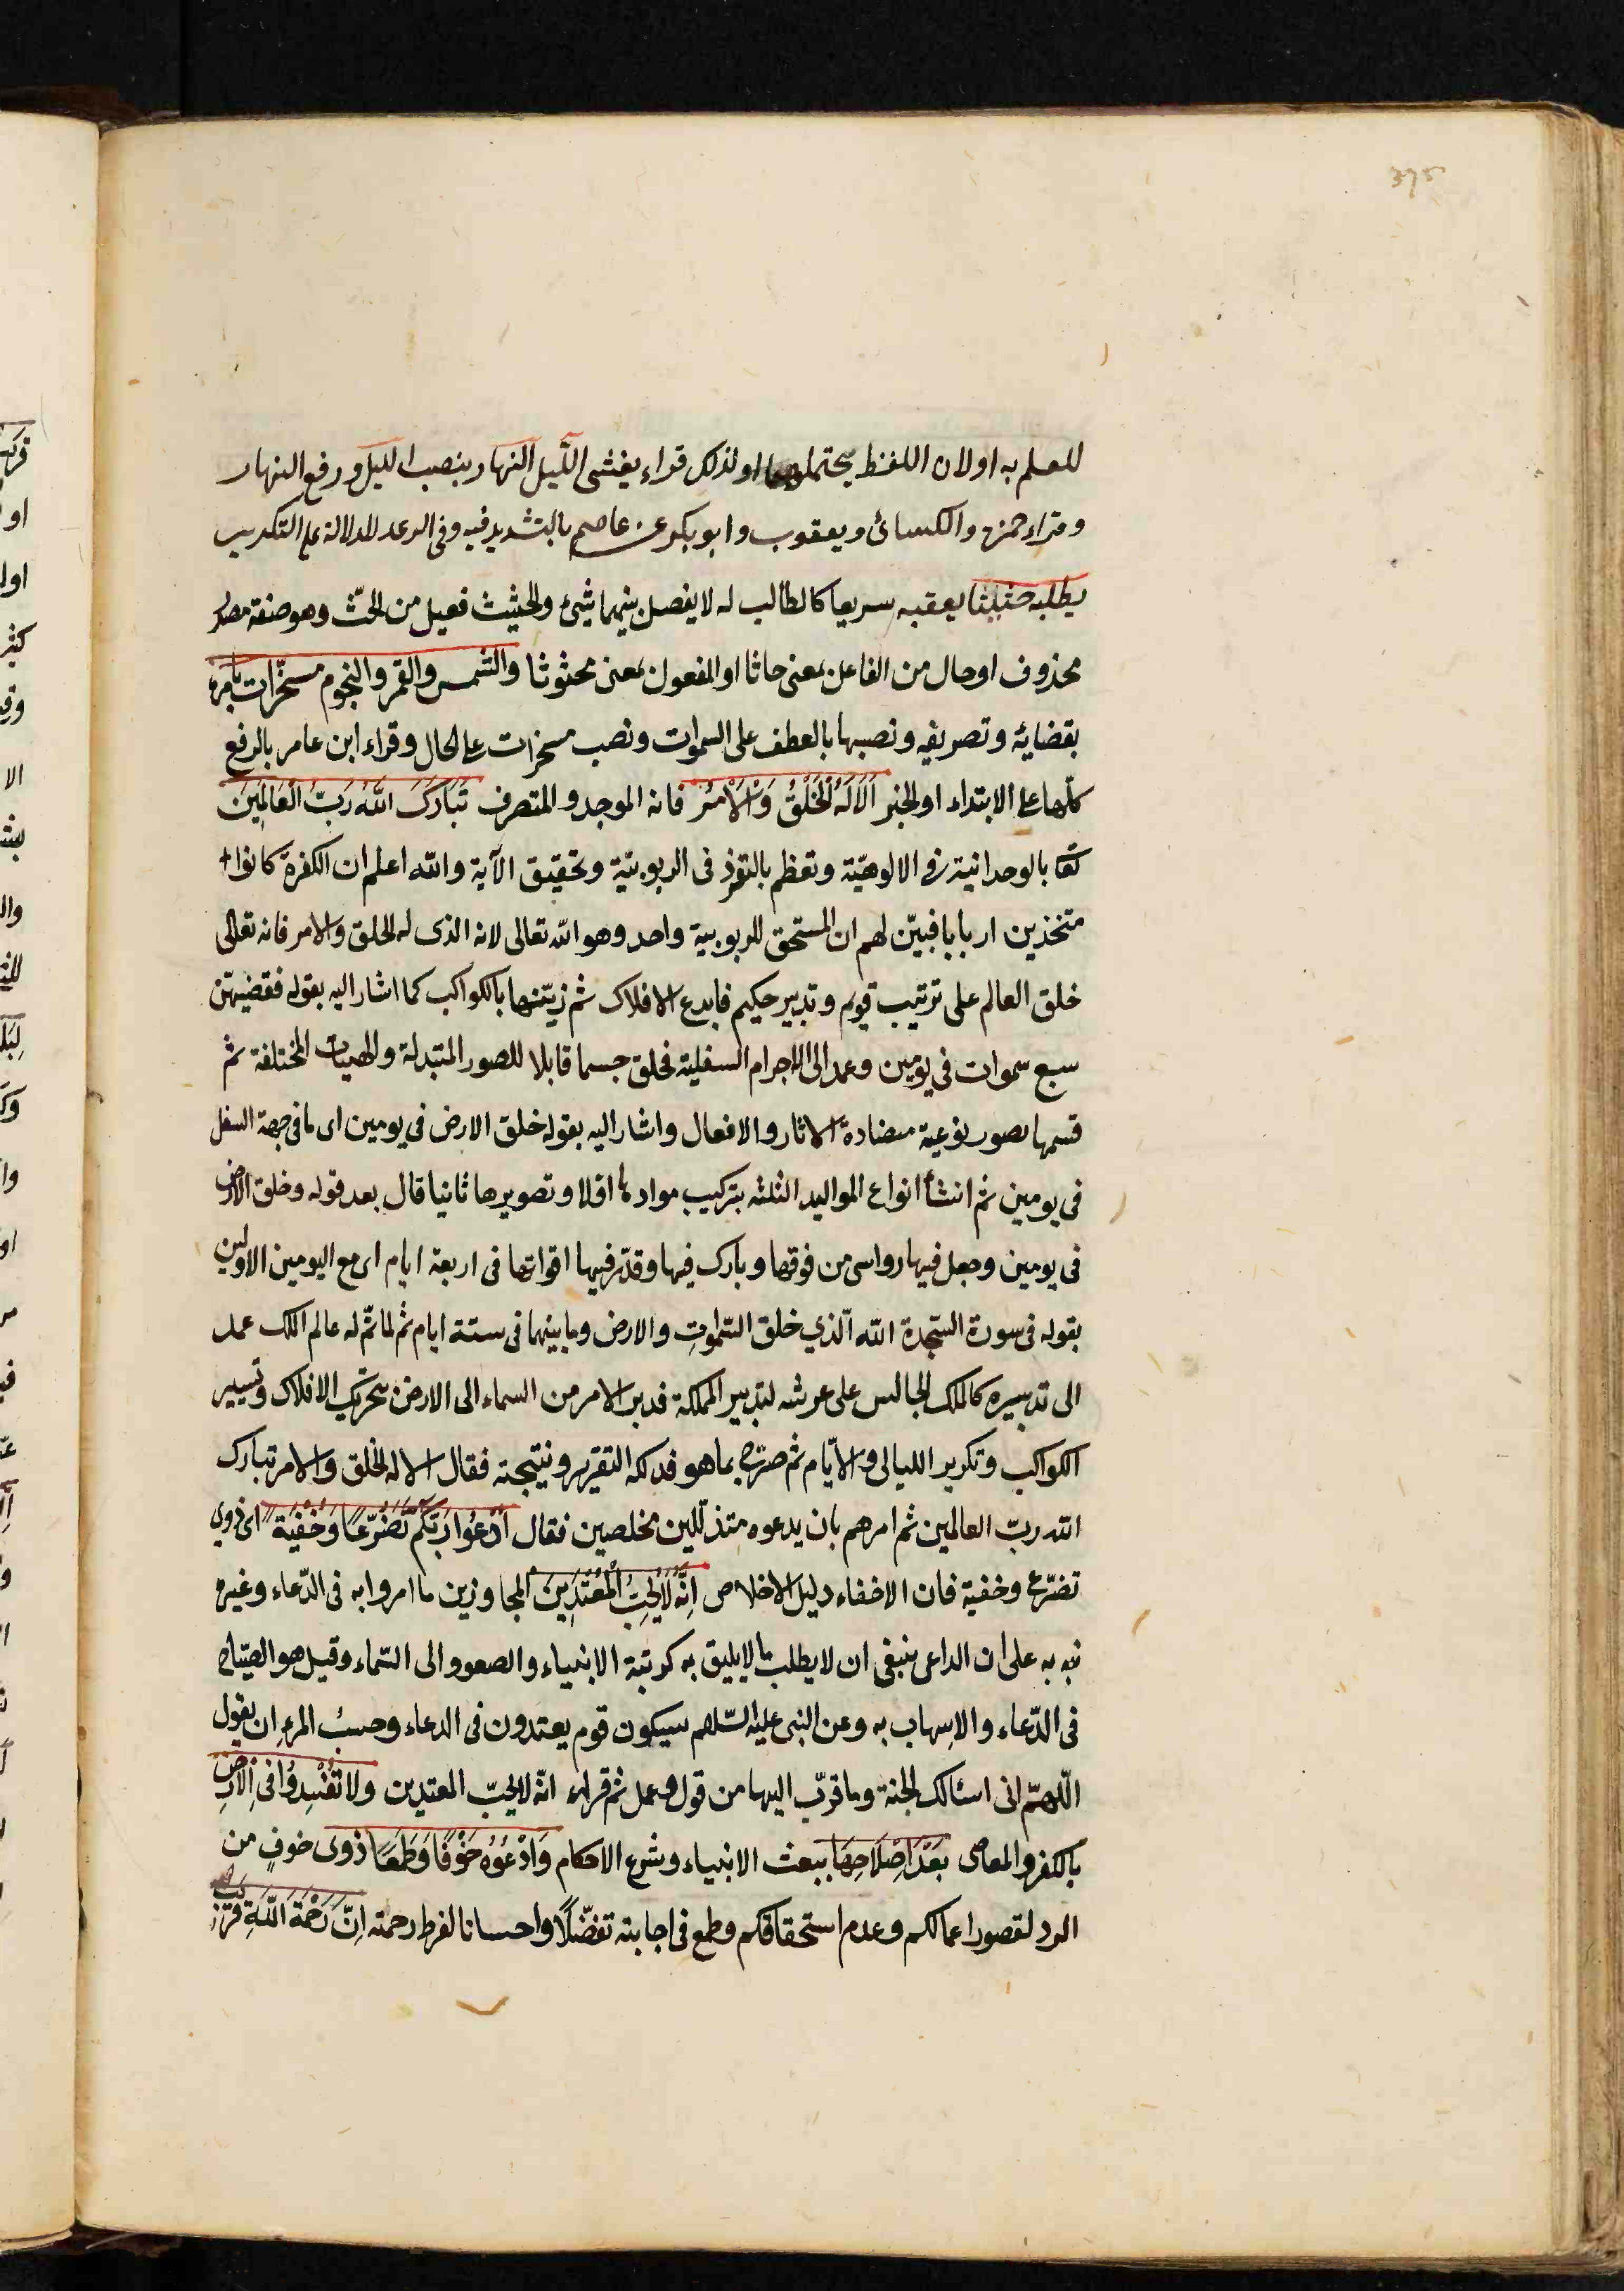 375
للعلم به اولان اللفظ يحتملهما ولذلك قراء يغشى اللّيل النهار بنصب الليل ورفع النهار
وقراء حمزة والكسائى ويعقوب وابو بكر عن عاصم بالتشديد فيه وفى الرعد للدلالة على التكرير
يطلبه حثيثا يعقبه سريعا كالطالب له لا يفصل بينهما شئ والحثيث فعيل من الحثّ وهو صفة مصدر
محذوف او حال من الفاعل بمعنى حاثا او المفعول بمعنى محثوثا والشمس والقمر والنجوم مسخّرات بامره
بقضائه وتصريفه ونصبها بالعطف على السموات ونصب مسخرات على الحال وقراء ابن عامر بالرفع
كلها على الابتداء والخبر اَلَا لَهُ الْخَلْقُ وَالْاَمْرُ فانه الموجد والمتصرف تَبَارَكَ اللّٰهُ رَبُّ الْعَالَمِينَ
تعا بالوحدانية فى الالوهيّة وتعظم بالتفرد فى الربوبيّة وتحقيق الآية والله اعلم ان الكفرة كانوا
متخذين اربابا فبيّن لهم ان المستحق للربوبية واحد وهو الله تعالى لانه الذى له الخلق والامر فانه تعالى
خلق العالم على ترتيب قويم وتدبير حكيم فابدع الافلاك ثم زيّنها بالكواكب كما اشار اليه بقوله فقضيهن
سبع سموات فى يومين وعمد الى الاجرام السفلية فخلق جسما قابلا للصور المتبدلة والهيات المختلفة ثم
قسمها بصور نوعية متضادة الاثار والافعال واشار اليه بقوله خلق الارض فى يومين اى ما فى جهة السفل
فى يومين ثم انشأ انواع المواليد الثلثه بتركيب موادها اولا وتصويرها ثانيا قال بعد قوله وخلق الارض
فى يومين وجعل فيها رواسى من فوقها وبارك فيها وقدّر فيها اقواتها فى اربعة ايام اى مع اليومين الاولين
بقوله فى سورة السّجدة الله الّذي خلق السّموٰت والارض وما بينهما فى ستة ايام ثم لما تمّ له عالم الملك عمد
الى تدبيره كالملك الجالس على عرشه لتدبير المملكة فدبر الامر من السماء الى الارض بتحريك الافلاك وتسيير
الكواكب وتكرير الليالى والايّام ثم صرّح بما هو فدلكة التقرير ونتيجته فقال الا له الخلق والامر تبارك
الله ربّ العالمين ثم امرهم بان يدعوه متذلّلين مخلصين فقال اُدْعُوا رَبَّكُمْ تَضَرُّعًا وَخُفْيَةً اى ذوى
تضرّع وخفية فان الاخفاء دليل الاخلاص اِنَّهُ لَا يُحِبُّ الْمُعْتَدِينَ المجاوزين ما امروا به فى الدّعاء وغيره
نبه به على ان الداعى ينبغى ان لا يطلب ما لا يليق به كرتبة الانبياء والصعود الى السّماء وقيل هو الصّياح
فى الدّعاء والاسهاب به وعن النبى عليه السّلام سيكون قوم يعتدون فى الدعاء وحسبُ المرء ان يقول
اللّهمّ انى اسئالك الجنة وما قرّب اليها من قول وعمل ثم قراء انّه لا يحبّ المعتدين ولا تُفْسِدُوا فى الارض
بالكفر والمعاصى بَعْدَ اِصْلَاحِهَا ببعث الانبياء وشرع الاحكام وَادْعُوهُ خَوْفًا وَطَمَعًا ذوى خوف من
الرد لقصور اعمالكم وعدم استحقاقكم وطمع فى اجابته تفضّلًا واحسانا لفرط رحمته اِنَّ رَحْمَةَ اللّٰهِ قريب